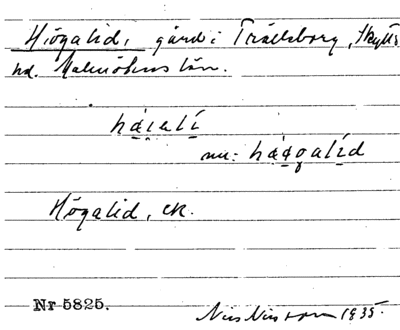 Högalid, gård i Trälleborg, Skytts
hd. Malmöhus län.
háialí
nu: háagalíd
Högalid, ek.
Nr 5825.
Nils Nilsson 1935